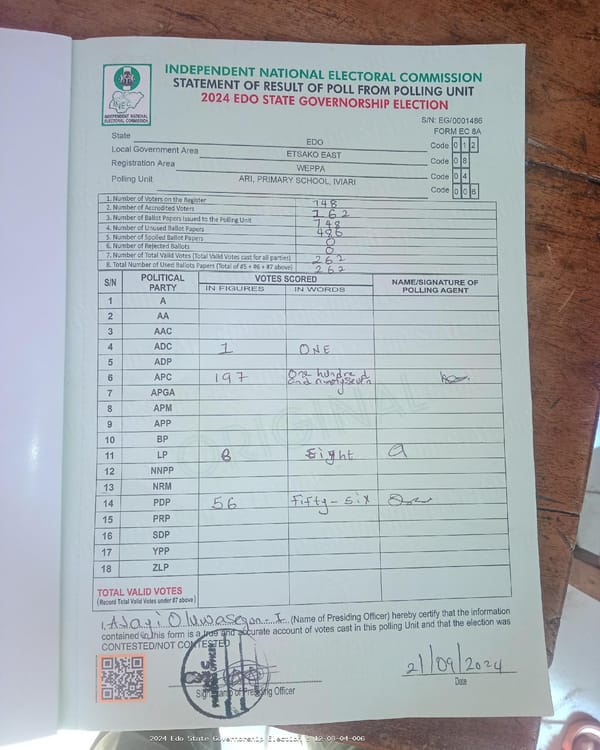 INDEPENDENT NATIONAL ELECTORAL COMMISSION
STATEMENT OF RESULT OF POLL FROM POLLING UNIT
2024 EDO STATE GOVERNORSHIP ELECTION
INEC
INDEPENDENT NATIONAL
ELECTORAL COMMISSION
S/N: EG/0001486
FORM EC 8A
State EDO Code 0 1 2
Local Government Area ETSAKO EAST Code 0 8
Registration Area WEPPA Code 0 4
Polling Unit ARI, PRIMARY SCHOOL, IVIARI Code 0 0 6
1. Number of Voters on the Register 748
2. Number of Accredited Voters 262
3. Number of Ballot Papers Issued to the Polling Unit 748
4. Number of Unused Ballot Papers 486
5. Number of Spoiled Ballot Papers 0
6. Number of Rejected Ballots 0
7. Number of Total Valid Votes (Total Valid Votes cast for all parties) 262
8. Total Number of Used Ballots Papers (Total of #5 + #6 + #7 above) 262
S/N POLITICAL PARTY VOTES SCORED NAME/SIGNATURE OF POLLING AGENT
IN FIGURES IN WORDS
1 A
2 AA
3 AAC
4 ADC 1 ONE
5 ADP
6 APC 197 One hundred and ninety seven
7 APGA
8 APM
9 APP
10 BP
11 LP 8 Eight
12 NNPP
13 NRM
14 PDP 56 Fifty-six
15 PRP
16 SDP
17 YPP
18 ZLP
ORIGINAL
TOTAL VALID VOTES
(Record Total Valid Votes under #7 above)
I, Ajayi Oluwasegun I (Name of Presiding Officer) hereby certify that the information
contained in this form is a true and accurate account of votes cast in this polling Unit and that the election was
CONTESTED/NOT CONTESTED
21/09/2024
Signature of Presiding Officer
Date
2024 Edo State Governorship Election - 12-08-04-006